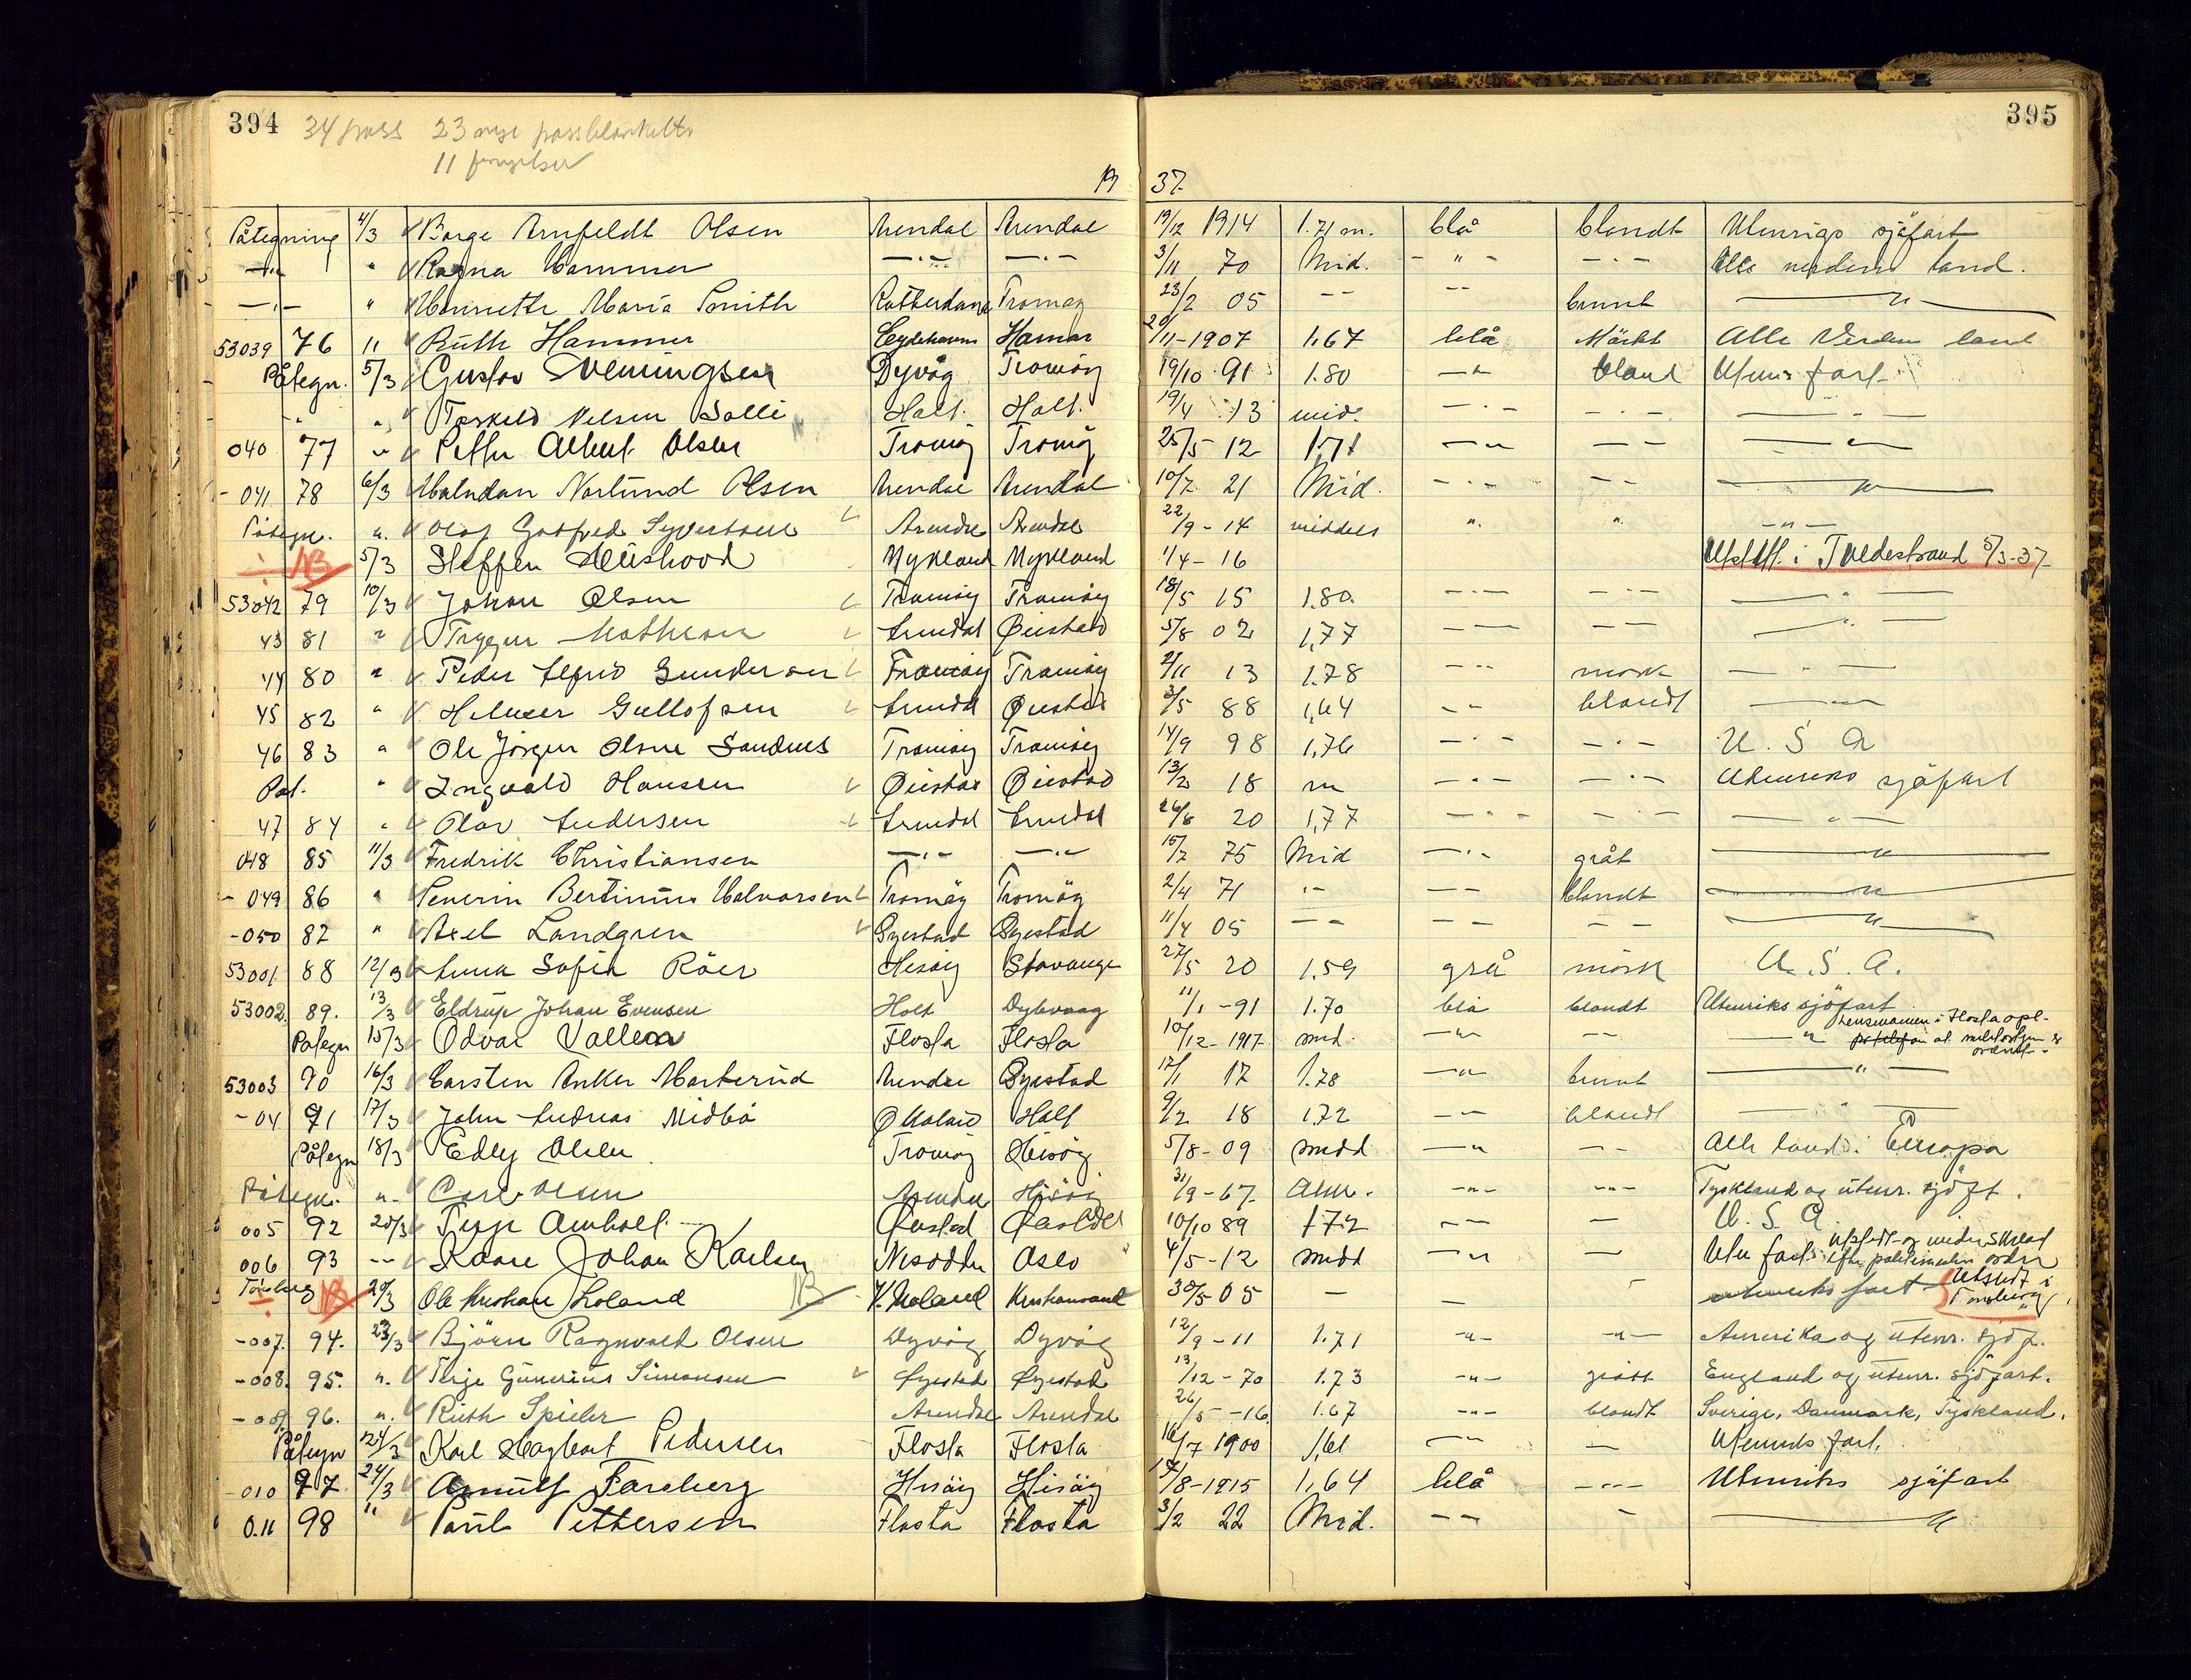 394 34 pass 23 nye passblanketter 395
11 fornyelser
19 37.
Påtegning 4/3 Borge Arnfeldt Olsen Arendal Arendal 19/12 1914 1.71 m. blå blondt Utenrigs sjöfart
—"— " Ragna Hammer —"— —"— 3/11 70 Mid. —"— —"— Alle verdens land.
—"— " Henriette Maria Smith Rotterdam Tromøy 23/2 05 — — — — brunt —"—
53039 76 11 Ruth Hammer Eydehavn Hamar 20/11-1907 1,67 blå Mörkt Alle Verdens land
Påtegn. 5/3 Gustav Hemingsen Dyvåg Tromöy 19/10 91 1.80 —"— bland Utenr. fart
" " Torkild Nilsen Solli Holt. Holt. 19/4 13 mid. —"— —"— —"—
040 77 " Petter Albert Olsen Tromöy Tromöy 25/5 12 1.71 —"— — — —"—
- 041 78 6/3 Halvdan Norlund Olsen Arendal Arendal 10/7 21 Mid. —"— — — —"—
Påtegn. ". Olaf Godfred Syvertsen Arendal Arendal 22/9 - 14 middels ". ". —"—
÷ NB 5/3 Steffen Heushood Mykland Mykland 1/4 - 16 Utstedt i Tvedestrand 5/3-37-
53042 79 10/3 Johan Olsen Tromöy Tromöy 18/5 15 1.80. —"— —"— —"—
43 81 " Trygve Mathisen Arendal Öiestad 5/8 02 1,77 — — — — —"—
44 80 " Peder Alfred Gundersen Tromöy Tromöy 2/11 13 1.78 —"— mörk —"—
45 82 " Hilmer Gullofsen Arendal Öiestad 3/5 88 1,64 — — blondt —"—
46 83 " Ole Jörgen Olsen Sandnes Tromöy Tromöy 14/9 98 1,76 —"— —"— U. S A
Pat. " Ingvald Hansen Öiestad Öiestad 13/2 18 m —"— —"— Utenriks sjöfart
47 84 " Olav Andersen Arendal Arendal 26/6 20 1,77 —"— —"— —"—
048 85 11/3 Fredrik Christiansen —"— —"— 15/7 75 Mid —"— gråt —"—
- 049 86 " Severin Bertinius Halvorsen Tromöy Tromöy 2/4 71 "— — — blondt —"—
-050 87 " Axel Landgren Öyestad Öyestad 11/4 05 — — — — — — —"—
53001 88 12/3 Anna Sofie Röer Hisöy Stavanger 27/5 20 1.59 grå mörk U.S.A.
53002. 89. 13/3 Eldrup Johan Evensen Holt Dybvaag 11/1 -91 1.70 blå blondt Utenriks sjöfart
Påtegn 15/3 Odvar Vallem Flosta Flosta 10/12-1917 mid. —"— — — —"— Lensmannen i Flosta opl.
53003 90 16/3 Carsten Anker Markerud Arendal Öyestad 17/1 17 1.78 —"— brunt —"—
- 04 91 17/3 John Andreas Midbö Holt 9/2 18 1.72 — — blondt —"—
Påtegn 18/3 Edly Olsen Tromöy Hisöy 5/8 - 09 midd —"— — — Alle land i Europa
Påtegn. ". Carl Olsen Arendal Hisöy 31/9-67. Alm. —"— —"— Tyskland og utenr. sjöft.
005 92 20/3 Terje Amholt. Öiestad Öiestad 10/10 89 172 — — — U. S. A.
006 93 -- Kaare Johan Karlsen Nesodden Oslo 4/5-12 midd —"— — Uten fart Utstedt og underskrevet efter politimesterens ordre
Tönsberg ÷ NB 20/3 Ole Kristian Loland NB V. Moland Kristiansand 30/5 05 — — — utenriks fart Utstedt i Tönsberg
-007. 94. 23/3 Björn Ragnvald Olsen Dyvåg Dyvåg 12/9-11 1.71 —"— —"— Amerika og utenr. sjöf.
-008. 95. ". Terje Gunerius Simonsen Öyestad Öyestad 13/12-70 1.73 —"— grått England og utenr. sjöfart.
- 009. 96. ". Ruth Spieler Arendal Arendal 26/5-16. 1.67 —"— blondt Sverige, Danmark, Tyskland.
Påtegn 24/3 Karl Hagbart Pedersen Flosta Flosta 16/7 1900 1,61 —"— — Utenriks fart.
-010 97 24/3 Arnulf Farsberg Hisöy Hisöy 17/8-1915 1,64 blå —"— Utenriks sjöfart
0.11 98 " Paul Pettersen Flosta Flosta 3/2 22 Mid. — — — —"—